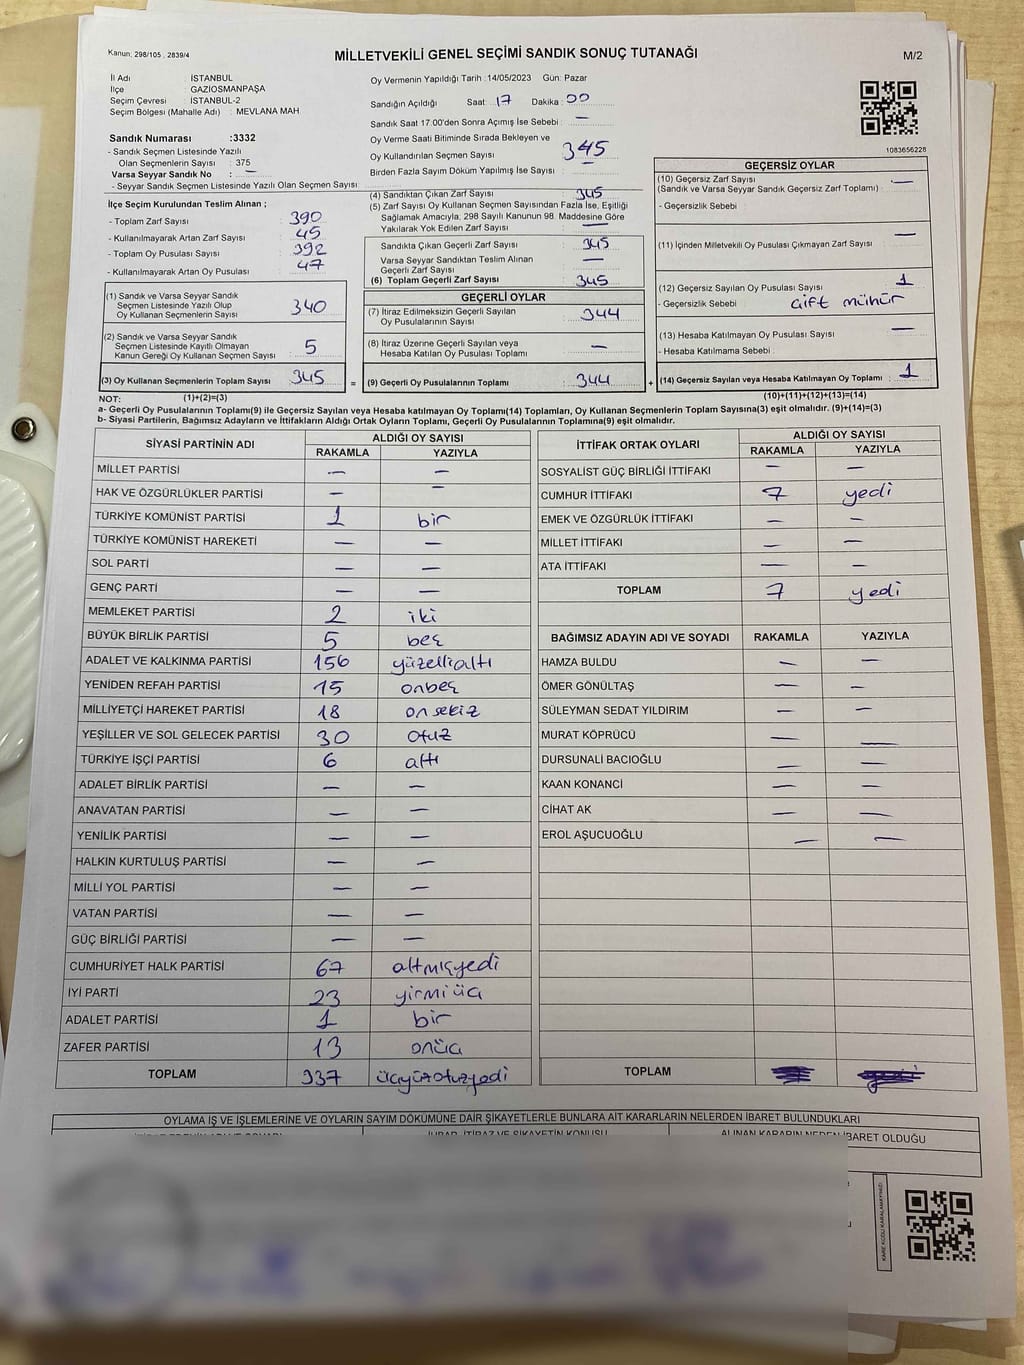 Kanun: 298/105 , 2839/4
MİLLETVEKİLİ GENEL SEÇİMİ SANDIK SONUÇ TUTANAĞI
M/2
İl Adı : İSTANBUL
İlçe : GAZİOSMANPAŞA
Seçim Çevresi : İSTANBUL-2
Seçim Bölgesi (Mahalle Adı) : MEVLANA MAH
Sandık Numarası :3332
- Sandık Seçmen Listesinde Yazılı
Olan Seçmenlerin Sayısı : 375
Varsa Seyyar Sandık No : —
- Seyyar Sandık Seçmen Listesinde Yazılı Olan Seçmen Sayısı:
İlçe Seçim Kurulundan Teslim Alınan ;
- Toplam Zarf Sayısı : 390
- Kullanılmayarak Artan Zarf Sayısı : 45
- Toplam Oy Pusulası Sayısı : 392
- Kullanılmayarak Artan Oy Pusulası : 47
(1) Sandık ve Varsa Seyyar Sandık
Seçmen Listesinde Yazılı Olup
Oy Kullanan Seçmenlerin Sayısı : 340
(2) Sandık ve Varsa Seyyar Sandık
Seçmen Listesinde Kayıtlı Olmayan
Kanun Gereği Oy Kullanan Seçmen Sayısı : 5
(3) Oy Kullanan Seçmenlerin Toplam Sayısı : 345 =
Oy Vermenin Yapıldığı Tarih :14/05/2023 Gün: Pazar
Sandığın Açıldığı Saat: 17 Dakika : 00
Sandık Saat 17.00'den Sonra Açımış İse Sebebi : —
Oy Verme Saati Bitiminde Sırada Bekleyen ve
Oy Kullandırılan Seçmen Sayısı : 345
Birden Fazla Sayım Döküm Yapılmış İse Sayısı : —
(4) Sandıktan Çıkan Zarf Sayısı : 345
(5) Zarf Sayısı Oy Kullanan Seçmen Sayısından Fazla İse, Eşitliği
Sağlamak Amacıyla, 298 Sayılı Kanunun 98. Maddesine Göre
Yakılarak Yok Edilen Zarf Sayısı : —
Sandıkta Çıkan Geçerli Zarf Sayısı : 345
Varsa Seyyar Sandıktan Teslim Alınan
Geçerli Zarf Sayısı : —
(6) Toplam Geçerli Zarf Sayısı : 345
GEÇERLİ OYLAR
(7) İtiraz Edilmeksizin Geçerli Sayılan
Oy Pusulalarının Sayısı : 344
(8) İtiraz Üzerine Geçerli Sayılan veya
Hesaba Katılan Oy Pusulası Toplamı : —
(9) Geçerli Oy Pusulalarının Toplamı : 344 +
1083656228
GEÇERSİZ OYLAR
(10) Geçersiz Zarf Sayısı : —
(Sandık ve Varsa Seyyar Sandık Geçersiz Zarf Toplamı) :
- Geçersizlik Sebebi :
(11) İçinden Milletvekili Oy Pusulası Çıkmayan Zarf Sayısı : —
(12) Geçersiz Sayılan Oy Pusulası Sayısı : 1
- Geçersizlik Sebebi : çift mühür
(13) Hesaba Katılmayan Oy Pusulası Sayısı : —
- Hesaba Katılmama Sebebi :
(14) Geçersiz Sayılan veya Hesaba Katılmayan Oy Toplamı : 1
NOT: (1)+(2)=(3) (10)+(11)+(12)+(13)=(14)
a- Geçerli Oy Pusulalarının Toplamı(9) ile Geçersiz Sayılan veya Hesaba katılmayan Oy Toplamı(14) Toplamları, Oy Kullanan Seçmenlerin Toplam Sayısına(3) eşit olmalıdır. (9)+(14)=(3)
b- Siyasi Partilerin, Bağımsız Adayların ve İttifakların Aldığı Ortak Oyların Toplamı, Geçerli Oy Pusulalarının Toplamına(9) eşit olmalıdır.
SİYASİ PARTİNİN ADI ALDIĞI OY SAYISI
RAKAMLA YAZIYLA
MİLLET PARTİSİ — —
HAK VE ÖZGÜRLÜKLER PARTİSİ — —
TÜRKİYE KOMÜNİST PARTİSİ 1 bir
TÜRKİYE KOMÜNİST HAREKETİ — —
SOL PARTİ — —
GENÇ PARTİ — —
MEMLEKET PARTİSİ 2 iki
BÜYÜK BİRLİK PARTİSİ 5 beş
ADALET VE KALKINMA PARTİSİ 156 yüzellialtı
YENİDEN REFAH PARTİSİ 15 onbeş
MİLLİYETÇİ HAREKET PARTİSİ 18 onsekiz
YEŞİLLER VE SOL GELECEK PARTİSİ 30 otuz
TÜRKİYE İŞÇİ PARTİSİ 6 altı
ADALET BİRLİK PARTİSİ — —
ANAVATAN PARTİSİ — —
YENİLİK PARTİSİ — —
HALKIN KURTULUŞ PARTİSİ — —
MİLLİ YOL PARTİSİ — —
VATAN PARTİSİ — —
GÜÇ BİRLİĞİ PARTİSİ — —
CUMHURİYET HALK PARTİSİ 67 altmışyedi
İYİ PARTİ 23 yirmiüç
ADALET PARTİSİ 1 bir
ZAFER PARTİSİ 13 onüç
TOPLAM 337 üçyüzotuzyedi
İTTİFAK ORTAK OYLARI ALDIĞI OY SAYISI
RAKAMLA YAZIYLA
SOSYALİST GÜÇ BİRLİĞİ İTTİFAKI — —
CUMHUR İTTİFAKI 7 yedi
EMEK VE ÖZGÜRLÜK İTTİFAKI — —
MİLLET İTTİFAKI — —
ATA İTTİFAKI — —
TOPLAM 7 yedi
BAĞIMSIZ ADAYIN ADI VE SOYADI RAKAMLA YAZIYLA
HAMZA BULDU — —
ÖMER GÖNÜLTAŞ — —
SÜLEYMAN SEDAT YILDIRIM — —
MURAT KÖPRÜCÜ — —
DURSUNALİ BACIOĞLU — —
KAAN KONANCİ — —
CİHAT AK — —
EROL AŞUCUOĞLU — —
TOPLAM
OYLAMA İŞ VE İŞLEMLERİNE VE OYLARIN SAYIM DÖKÜMÜNE DAİR ŞİKAYETLERLE BUNLARA AİT KARARLARIN NELERDEN İBARET BULUNDUKLARI
İHBAR, İTİRAZ VE ŞİKAYETİN KONUSU
ALINAN KARARIN NEDEN İBARET OLDUĞU
KARE KODU KARALAMAYINIZ!